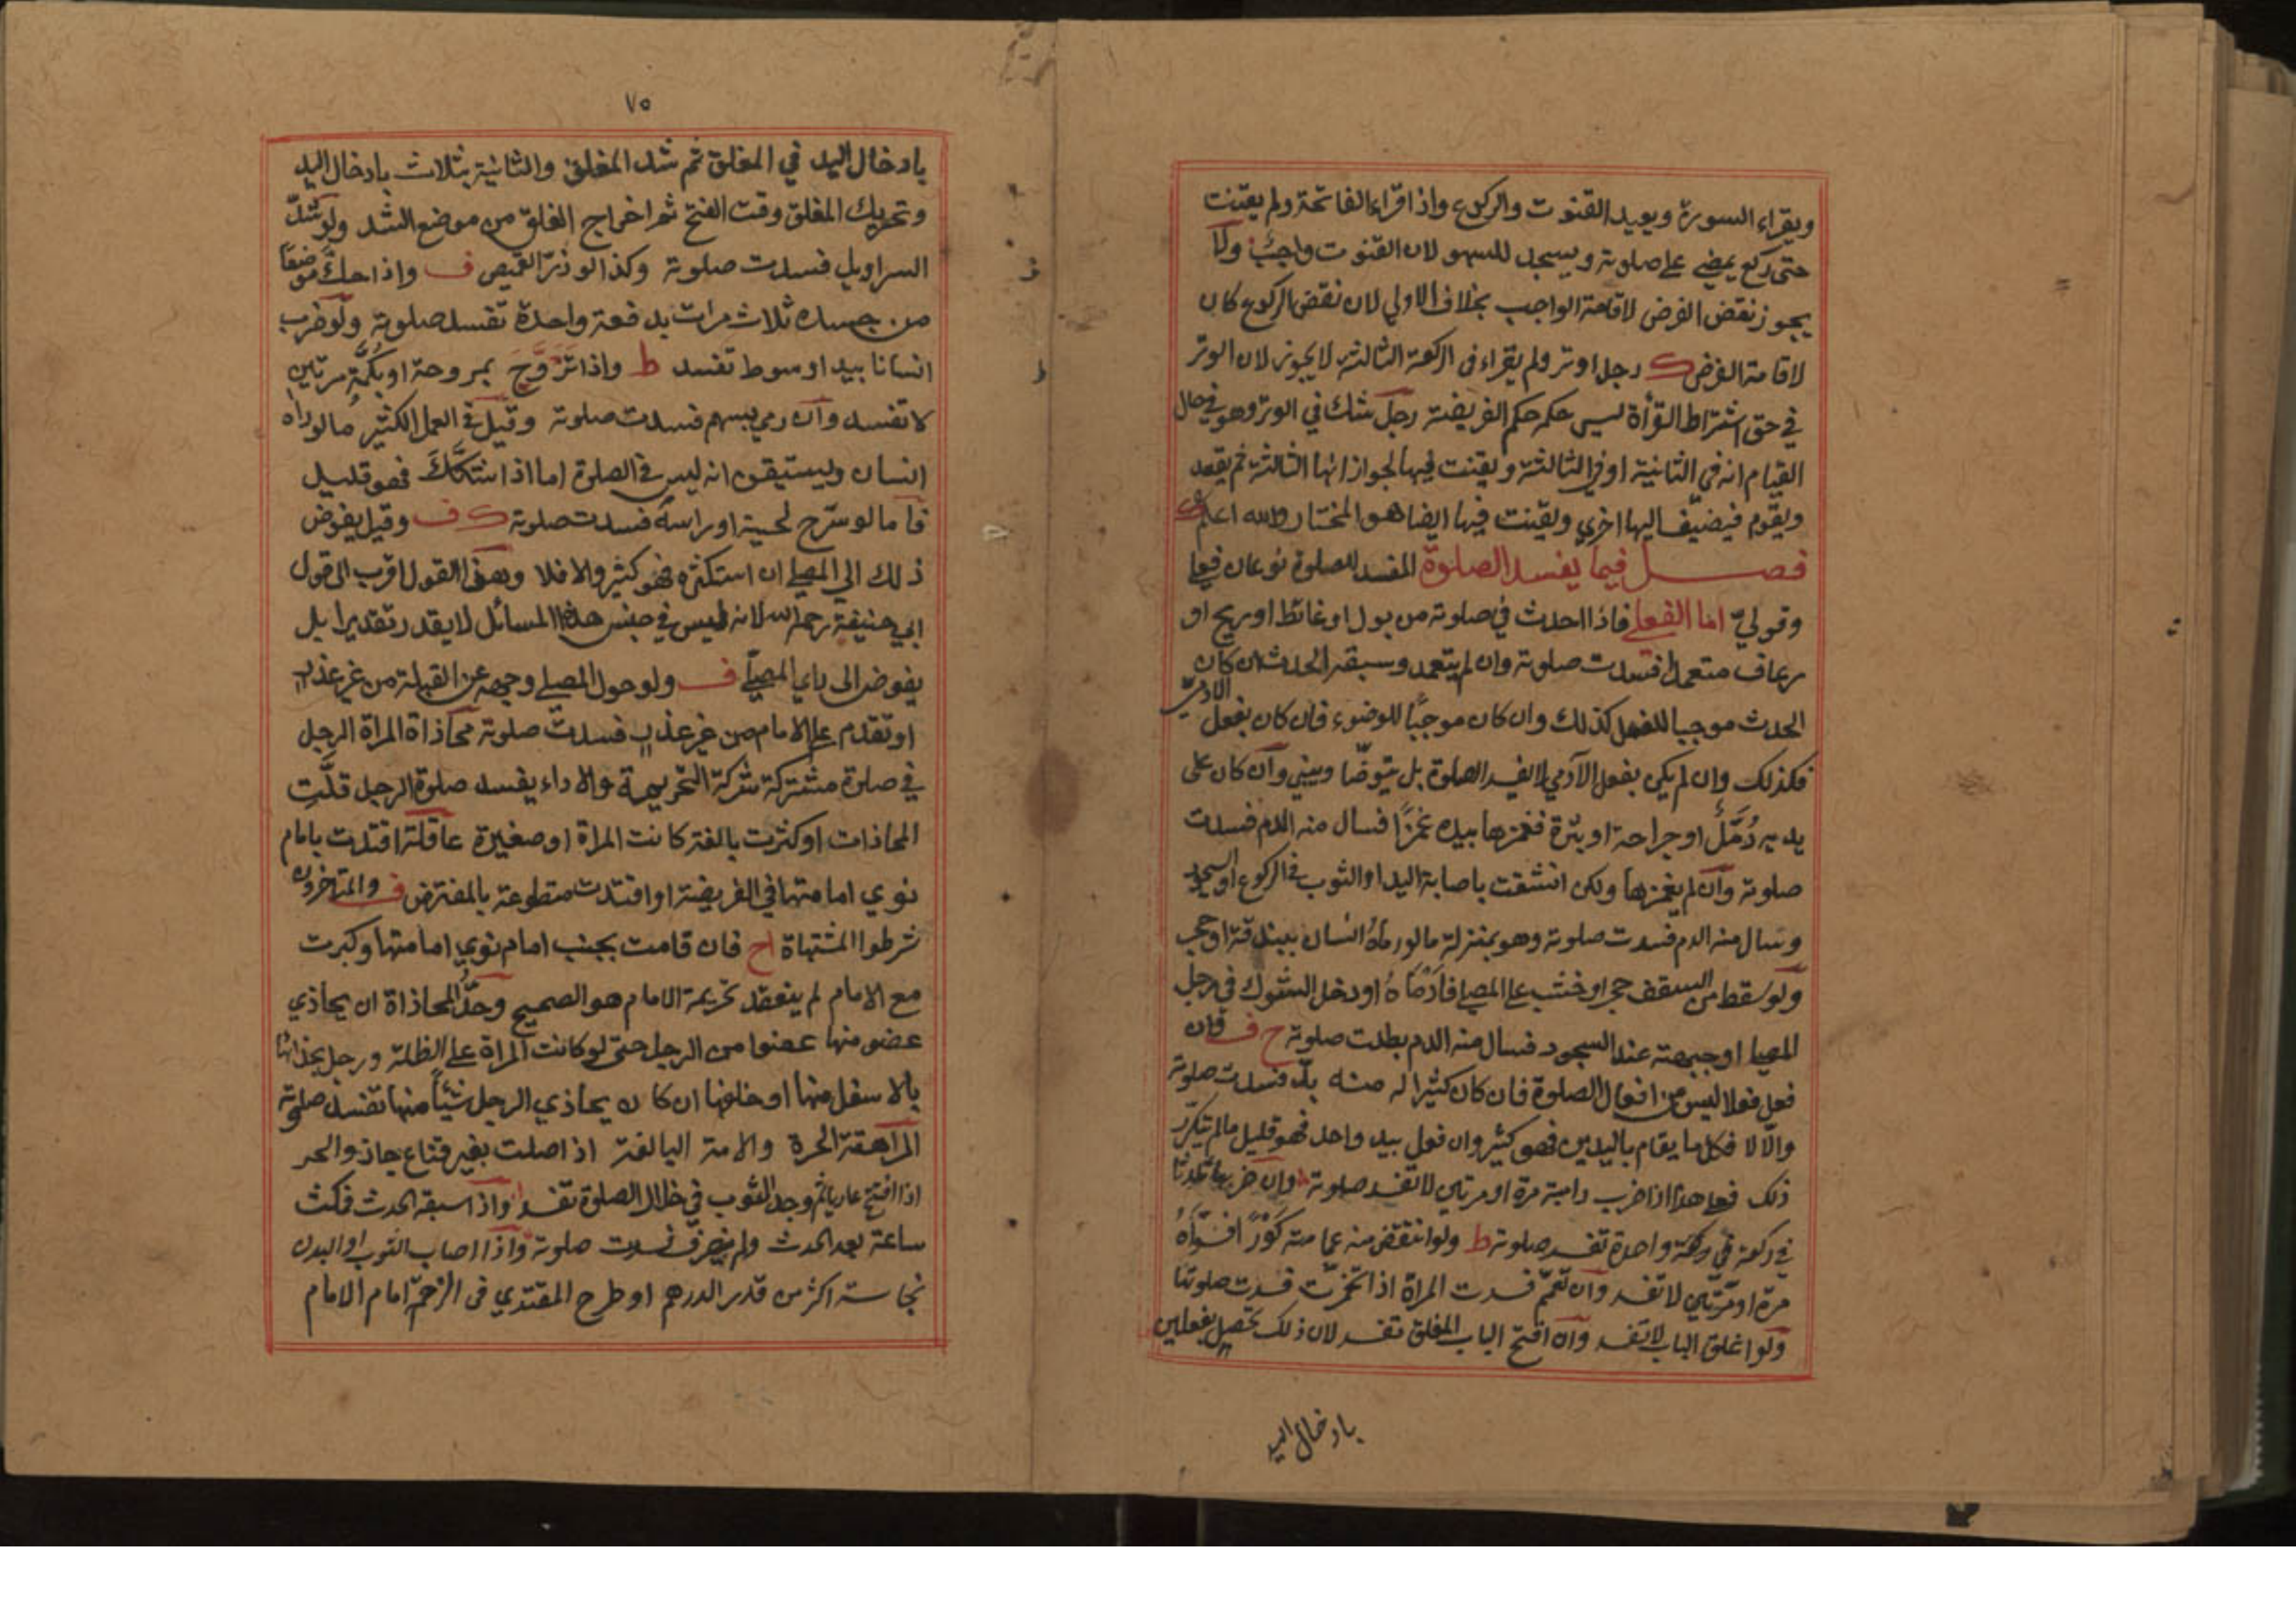 ويقراء السورة ويعيد القنوت والركوع واذا قراء الفاتحة ولم يقنت
حتى ركع يمضي على صلوته ويسجد للسهو لان القنوت واجب ولا
يجوز نقض الفرض لاقامة الواجب بخلاف الاولي لان نقض الركوع كان
لاقامة الفرض ك رجل اوتر ولم يقراء في الركعة الثالثة لا يجوز لان الوتر
في حق اشتراط القرأة ليس حكمه حكم الفريضة رجل شك في الوتر وهو في حال
القيام انه في الثانية او في الثالثة ويقنت فيها لجواز انها الثالثة ثم يقعد
ويقوم فيضيف اليها اخري ويقنت فيها ايضا هو المختار والله اعلم
فصل فيما يفسد الصلوة المفسد للصلوة نوعان فعلي
وقولي اما الفعلي فاذا احدث في صلوته من بول او غائط او ريح او
رعاف متعمدا فسدت صلوته وان لم يتعمد وسبقه الحدث ان كان
الحدث موجبا للغسل كذلك وان كان موجبا للوضوء فان كان بفعل الادمي
فكذلك وان لم يكن بفعل الآدمي لا يفسد الصلوة بل يتوضأ ويبني وان كان على
يديه دمل او جراحة او بثرة فغمزها بيده غمزا فسال منه الدم فسدت
صلوته وان لم يغمزها ولكن انشقت باصابة اليد او الثوب في الركوع او السجود
وسال منه الدم فسدت صلوته وهو بمنزلة ما لو رماه انسان ببندقة او حجر
ولو سقط من السقف حجر او خشب على المصلي فادماه او دخل الشوك في رجل
المصلي او جبهته عند السجود فسال منه الدم بطلت صلوته ح ف فان
فعل فعلا ليس من افعال الصلوة فان كان كثيرا له منه بد فسدت صلوته
والا لا فكل ما يقام باليدين فهو كثير وان فعل بيد واحد فهو قليل ما لم يتكرر
ذلك فعلى هذا اذا ضرب دابة مرة او مرتين لا تفسد صلوته وان ضربها ثلاثا
في ركعة واحدة تفسد صلوته ط ولو انتقض منه عمامته كورا فسواه
مرة او مرتين لا تفسد وان تعمم فسدت المراة اذا تخمرت فسدت صلوتها
ولو اغلق الباب لا تفسد وان افتح الباب المغلق تفسد لان ذلك يحصل بفعلين
بادخال اليد
٧٥
بادخال اليد في المغلق ثم شد المغلق والثانية بثلاث بادخال اليد
وتحريك المغلق وقت الفتح ثم اخراج الغلق من موضع الشد ولو شد
السراويل فسدت صلوته وكذا لو زر القميص ف واذا حك موضعا
من جسده ثلاث مرات بدفعة واحدة تفسد صلوته ولو ضرب
انسانا بيد او سوط تفسد ط واذا تروح بمروحة او بكمه مرتين
لا تفسد وان رمي بسهم فسدت صلوته وقيل في العمل الكثير ما لو راه
انسان وليستيقن انه ليس في الصلوة اما اذا استكك فهو قليل
فاما لو سرح لحيته او راسه فسدت صلوته ك ف وقيل يفوض
ذلك الي المصلي ان استكثره فهو كثير والا فلا وهذا القول اقرب الى قول
ابي حنيفة رحمه الله لانه ليس في جنس هذه المسائل لا يقدر تقديرا بل
يفوض الى راي المصلي ف ولو حول المصلي وجهه عن القبلة من غير عذر
او تقدم على الامام من غير عذر فسدت صلوته محاذاة المراة الرجل
في صلوة مشتركة شركة التحريمة والاداء يفسد صلوة الرجل قلت
المحاذات او كثرت بالغة كانت المراة او صغيرة عاقلة اقتدت بامام
نوي امامتها في الفريضة او اقتدت متطوعة بالمفترض ف والمتاخرون
شرطوا المشتهاة اح فان قامت بجنب امام نوي امامتها وكبرت
مع الامام لم ينعقد تحريمة الامام هو الصحيح وحد المحاذاة ان يحاذي
عضو منها عضوا من الرجل حتى لو كانت المراة على الظلة ورجل بحذائها
بالاسفل منها او خلفها ان كان يحاذي الرجل شيئا منها تفسد صلوته
المراهقة الحرة والامة البالغة اذا صلت بغير قناع جاز والحر
اذا افتتح عاريا ثم وجد الثوب في خلال الصلوة تفسد واذا سبقه الحدث فمكث
ساعة بعد الحدث ولم ينصرف فسدت صلوته واذا اصاب الثوب او البدن
نجاسة اكثر من قدر الدرهم او طرح المقتدي في الزحمة امام الامام